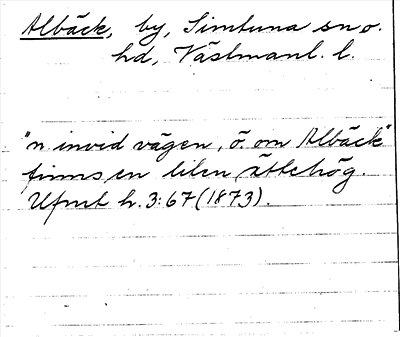 Albäck, by, Simtuna sn o.
hd, Västmanl. l.
"n invid vägen, ö. om Albäck"
finns en liten ättehög.
Ufmt h. 3:67 (1873).